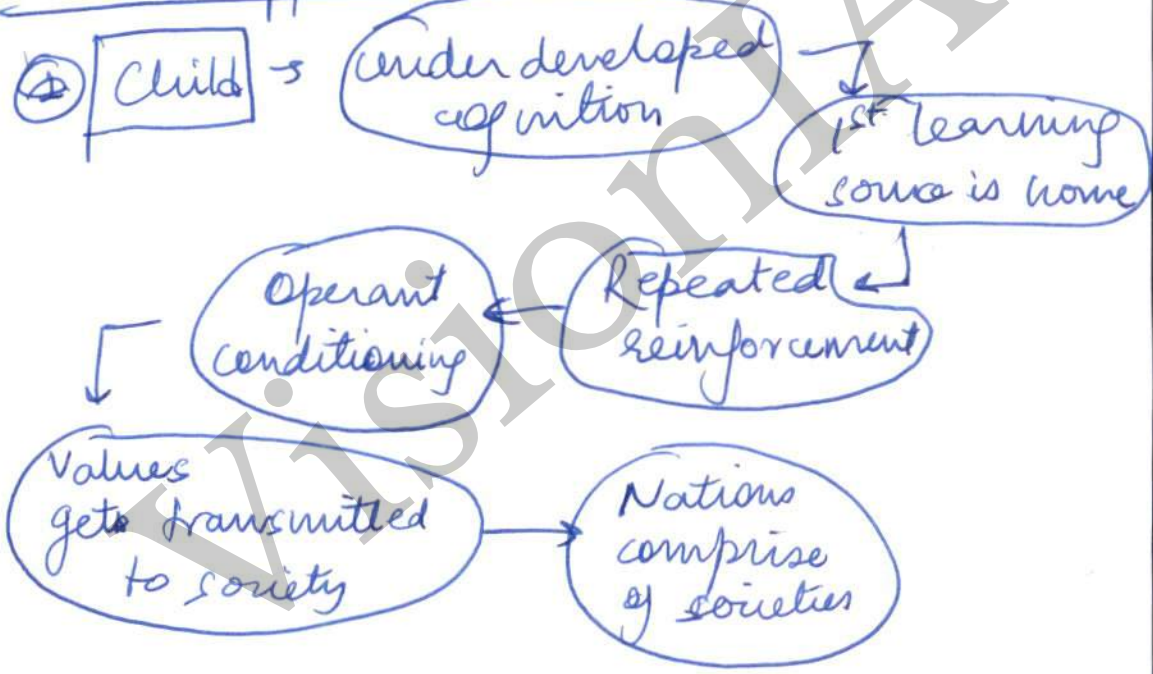 Child
underdeveloped
cognition
1st learning
source is home
Repeated
reinforcement
Operant
conditioning
Values
gets transmitted
to society
Nations
comprise
of societies
VisionIA